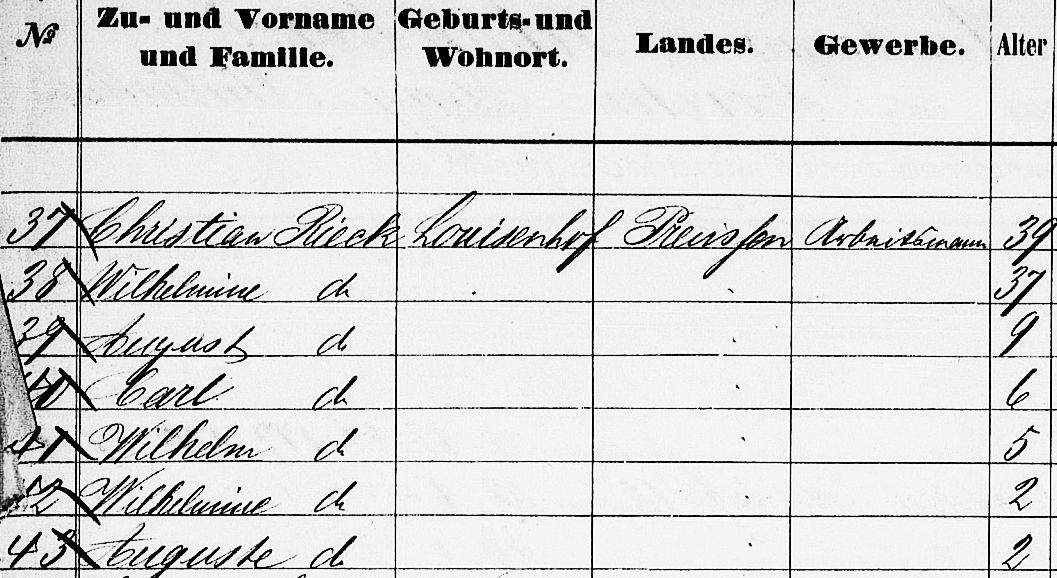 № Zu- und Vorname und Familie. Geburts- und Wohnort. Landes. Gewerbe. Alter
37 Christian Rieck Louisenhof Preussen Arbeitsmann 39
38 Wilhelmine do 37
39 August do 9
40 Carl do 6
41 Wilhelm do 5
42 Wilhelmine do 2
43 Auguste do 2